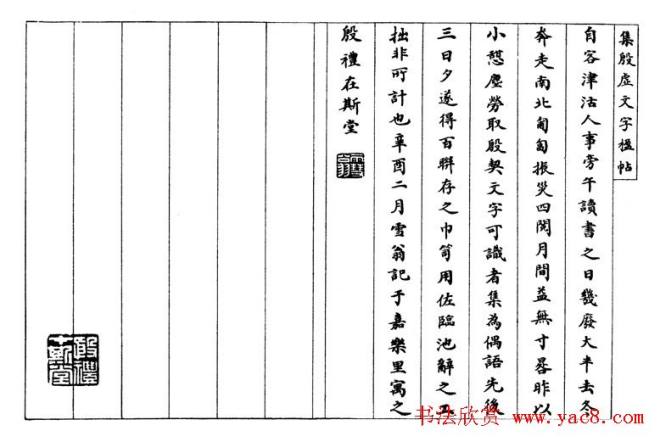 集殷虛文字楹帖
自客津沽人事旁午讀書之日幾廢大半去冬
奔走南北匍匐振災四閱月間益無寸晷昨以
小憩塵勞取殷契文字可識者集為偶語先後
三日夕遂得百聯存之巾笥用佐臨池辭之工
拙非所計也辛酉二月雪翁記于嘉樂里寓之
殷禮在斯堂
雪翁
殷禮在斯堂
书法欣赏 www.yac8.com